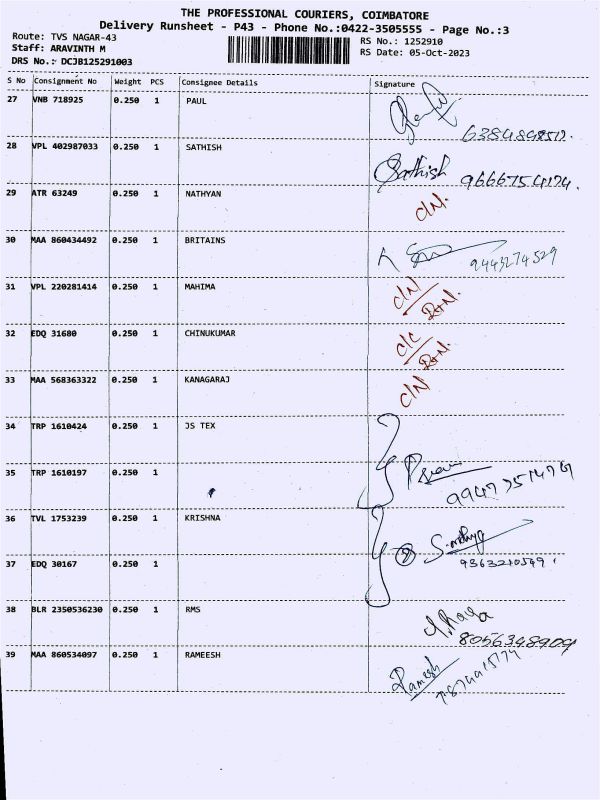 THE PROFESSIONAL COURIERS, COIMBATORE
Delivery Runsheet - P43 - Phone No.:0422-3505555 - Page No.:3
Route: TVS NAGAR-43 RS No.: 1252910
Staff: ARAVINTH M RS Date: 05-Oct-2023
DRS No.: DCJB125291003
S No Consignment No Weight PCS Consignee Details Signature
27 VNB 718925 0.250 1 PAUL
28 VPL 402987033 0.250 1 SATHISH Sathish 9666754174.
29 ATR 63249 0.250 1 NATHYAN C/N.
30 MAA 860434492 0.250 1 BRITAINS 9443274529
31 VPL 220281414 0.250 1 MAHIMA C/N
32 EDQ 31680 0.250 1 CHINUKUMAR C/C
33 MAA 568363322 0.250 1 KANAGARAJ C/N
34 TRP 1610424 0.250 1 JS TEX
35 TRP 1610197 0.250 1
36 TVL 1753239 0.250 1 KRISHNA
37 EDQ 30167 0.250 1 9363210549.
38 BLR 2350536230 0.250 1 RMS 8056348909
39 MAA 860534097 0.250 1 RAMEESH Ramesh